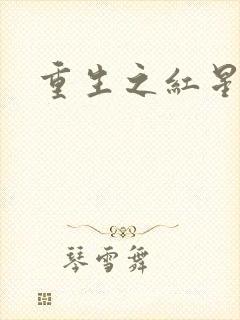 重生之紅星
琴雪舞